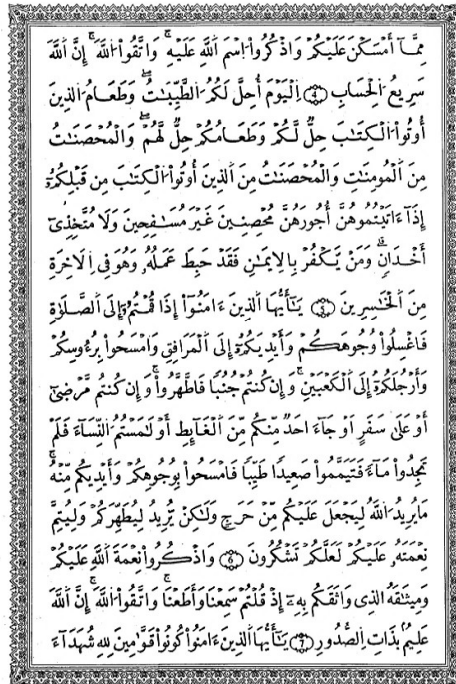 مِمَّآ أَمْسَكْنَ عَلَيْكُمْ وَاذْكُرُوا۟ اُ۪سْمَ اَ۬للَّهِ عَلَيْهِ وَاتَّقُوا۟ اُ۬للَّهَ إِنَّ اَ۬للَّهَ
سَرِيعُ اُ۬لْحِسَابِ 4 اِ۬لْيَوْمَ أُحِلَّ لَكُمُ اُ۬لطَّيِّبَٰتُ وَطَعَامُ اُ۬لذِينَ
أُوتُوا۟ اُ۬لْكِتَٰبَ حِلٌّ لَّكُمْ وَطَعَامُكُمْ حِلٌّ لَّهُمْ وَالْمُحْصَنَٰتُ
مِنَ اَ۬لْمُومِنَٰتِ وَالْمُحْصَنَٰتُ مِنَ اَ۬لذِينَ أُوتُوا۟ اُ۬لْكِتَٰبَ مِن قَبْلِكُمُۥٓ
إِذَآ ءَاتَيْتُمُوهُنَّ أُجُورَهُنَّ مُحْصِنِينَ غَيْرَ مُسَٰفِحِينَ وَلَا مُتَّخِذِىٓ
أَخْدَانٍ وَمَنْ يَّكْفُرْ بِالِايمَٰنِ فَقَدْ حَبِطَ عَمَلُهُۥ وَهُوَ فِى اِ۬لَاخِرَةِ
مِنَ اَ۬لْخَٰسِرِينَ 5 يَٰٓأَيُّهَا اَ۬لذِينَ ءَامَنُوٓا۟ إِذَا قُمْتُمُۥٓ إِلَى اَ۬لصَّلَوٰةِ
فَاغْسِلُوا۟ وُجُوهَكُمْ وَأَيْدِيَكُمُۥٓ إِلَى اَ۬لْمَرَافِقِ وَامْسَحُوا۟ بِرُءُوسِكُمْ
وَأَرْجُلَكُمُۥٓ إِلَى اَ۬لْكَعْبَيْنِ وَإِن كُنتُمْ جُنُبًا فَاطَّهَّرُوا۟ وَإِن كُنتُم مَّرْضَىٰٓ
أَوْ عَلَىٰ سَفَرٍ اَوْ جَآءَ احَدٌ مِّنكُم مِّنَ اَ۬لْغَآئِطِ أَوْ لَٰمَسْتُمُ اُ۬لنِّسَآءَ فَلَمْ
تَجِدُوا۟ مَآءً فَتَيَمَّمُوا۟ صَعِيدًا طَيِّبًا فَامْسَحُوا۟ بِوُجُوهِكُمْ وَأَيْدِيكُم مِّنْهُ
مَا يُرِيدُ اُ۬للَّهُ لِيَجْعَلَ عَلَيْكُم مِّنْ حَرَجٍ وَلَٰكِنْ يُّرِيدُ لِيُطَهِّرَكُمْ وَلِيُتِمَّ
نِعْمَتَهُۥ عَلَيْكُمْ لَعَلَّكُمْ تَشْكُرُونَ 6 وَاذْكُرُوا۟ نِعْمَةَ اَ۬للَّهِ عَلَيْكُمْ
وَمِيثَٰقَهُ اُ۬لذِى وَاثَقَكُم بِهِۦٓ إِذْ قُلْتُمْ سَمِعْنَا وَأَطَعْنَا وَاتَّقُوا۟ اُ۬للَّهَ إِنَّ اَ۬للَّهَ
عَلِيمٌۢ بِذَاتِ اِ۬لصُّدُورِ 7 يَٰٓأَيُّهَا اَ۬لذِينَ ءَامَنُوا۟ كُونُوا۟ قَوَّٰمِينَ لِلهِ شُهَدَآءَ